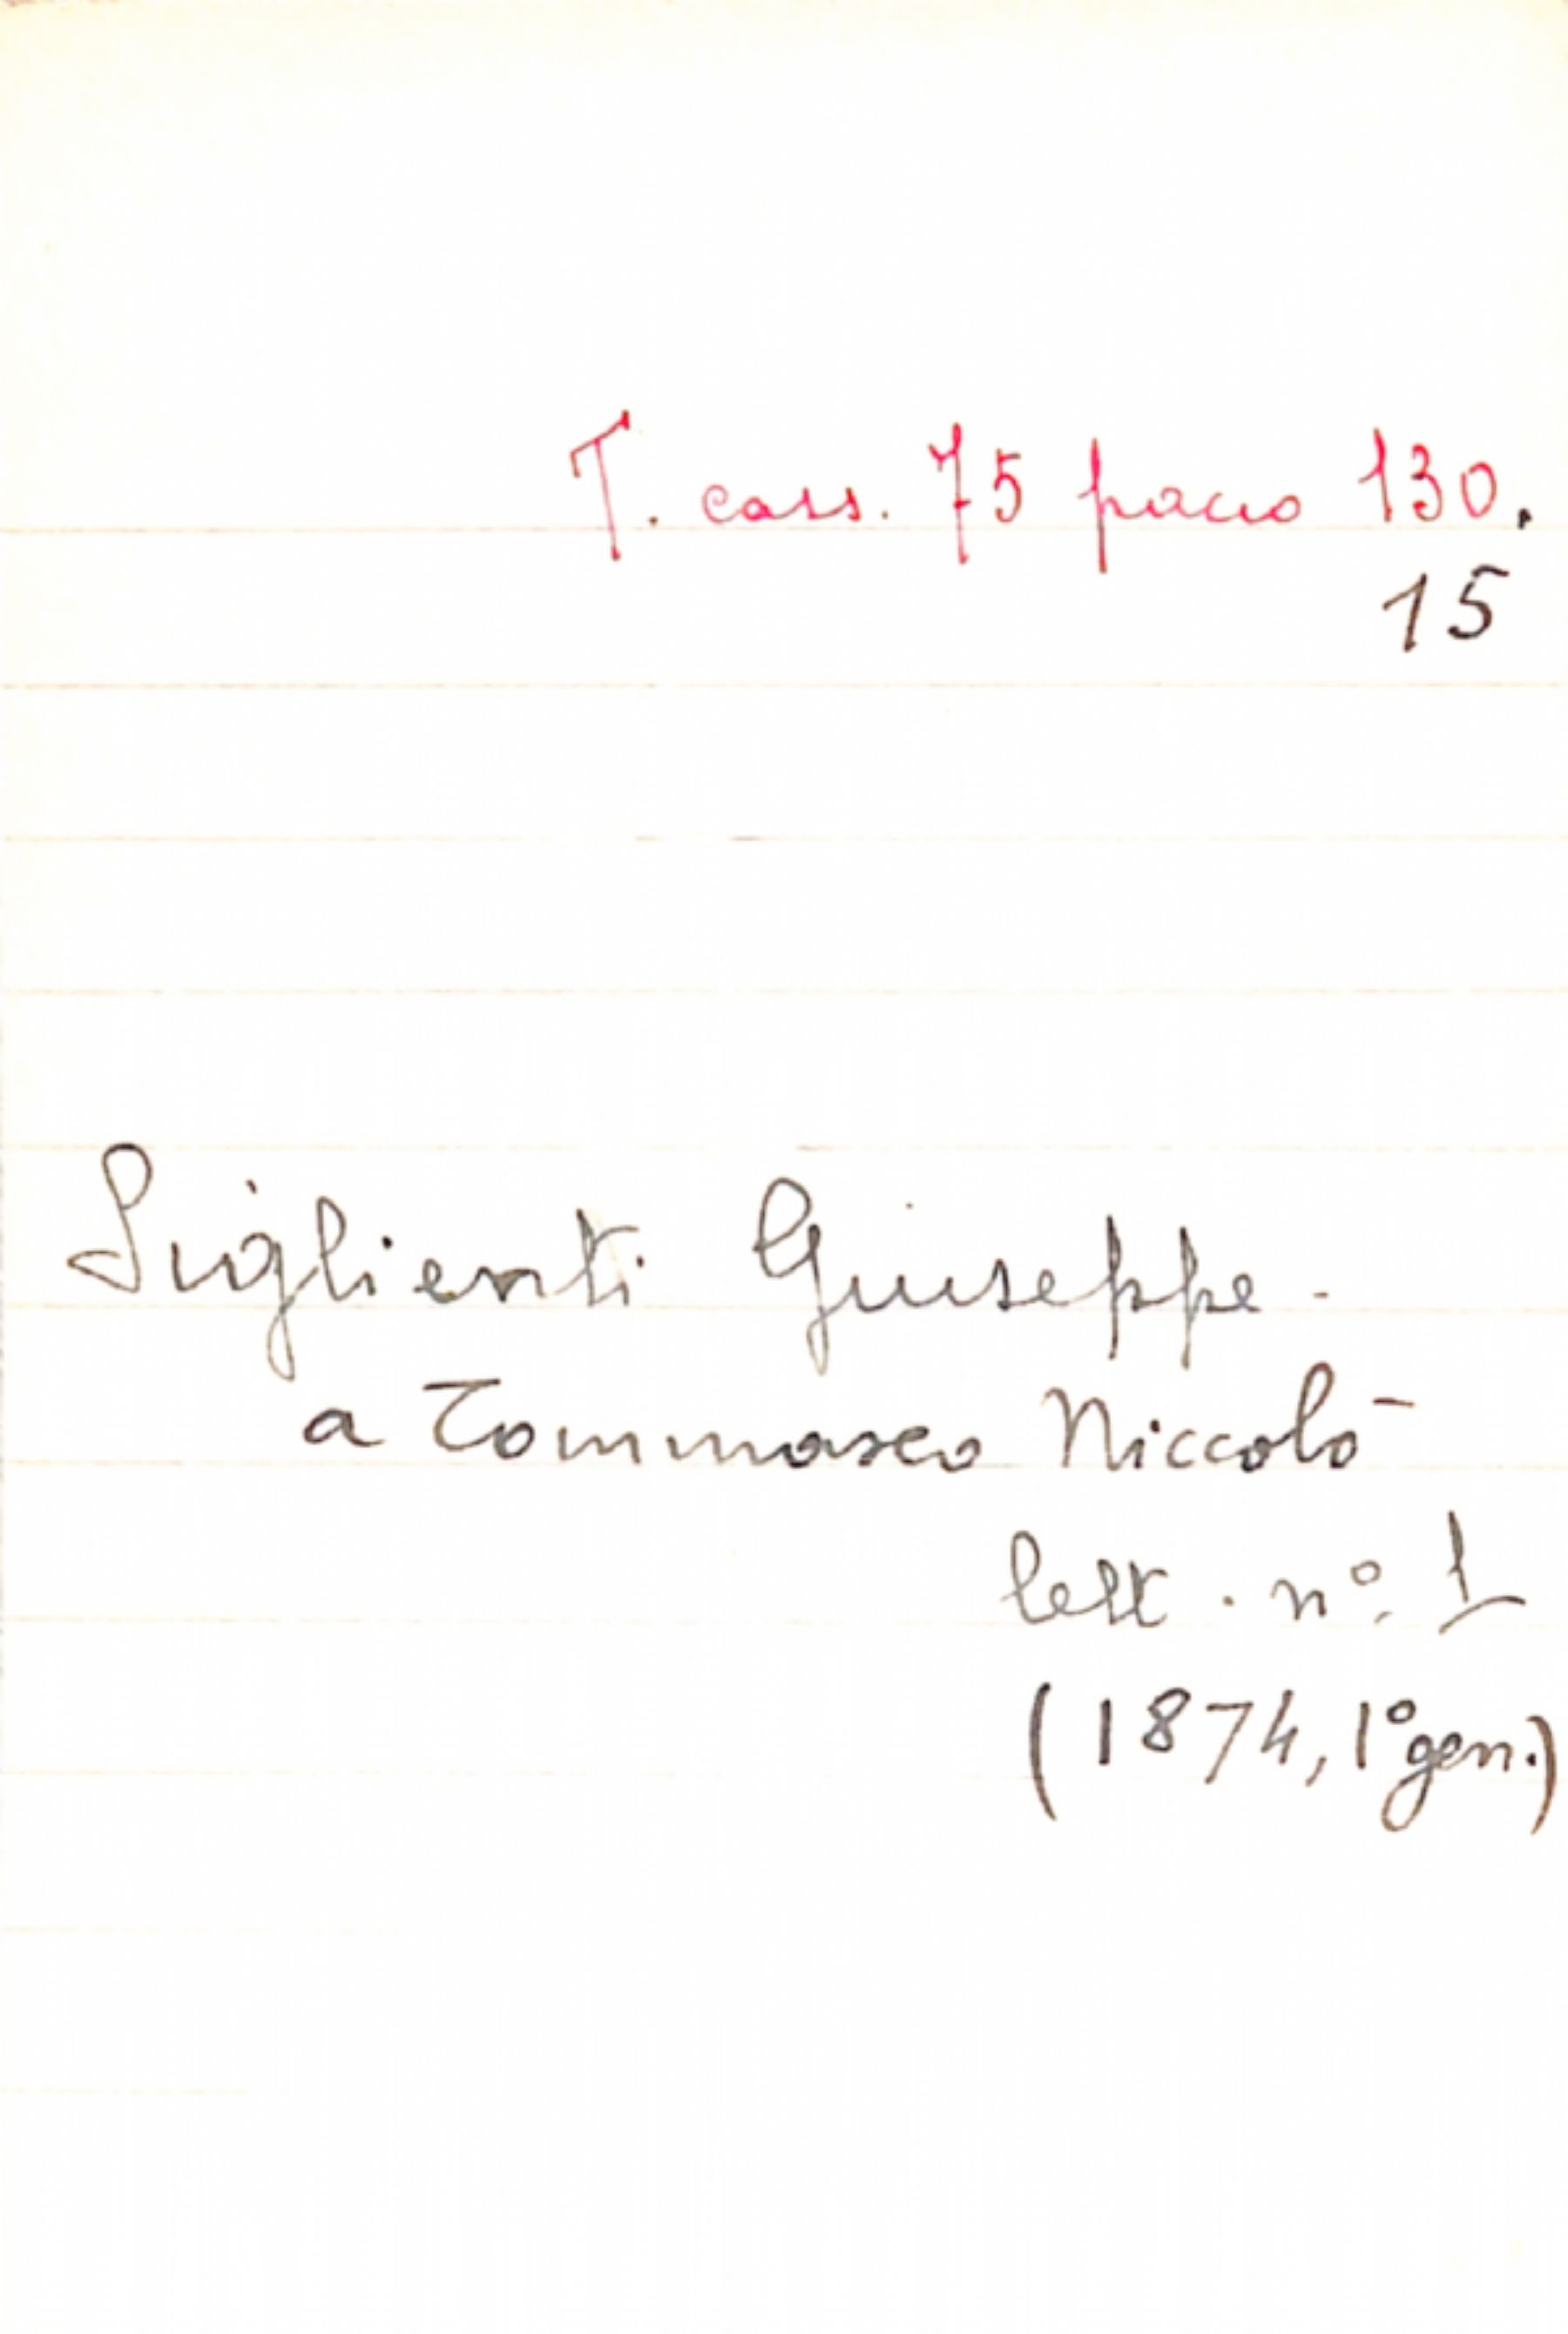 T. cass. 75 pacco 130.
15
Siglienti Giuseppe.
a Tommaseo Niccolò
lett. nº. 1
(1874, 1º gen.)